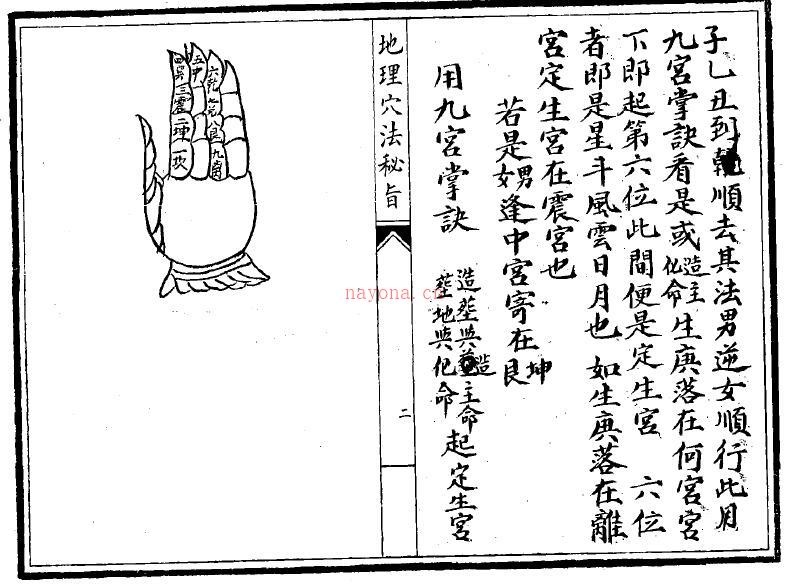 子乙丑到乾順去其法男逆女順行此月
九宮掌訣看是或造主化命生庚落在何宮宮
下即起第六位此間便是定生宮 六位
者即是星斗風雲日月也 如生庚落在離
宮定生宮在震宮也
若是男女逢中宮寄在坤艮
用九宮掌訣 造塟與造主命塟地與化命起定生宮
地理穴法秘旨
二
六乾 七兌 八艮 九离
五中
四巽 三震 二坤 一坎
nayona.cn